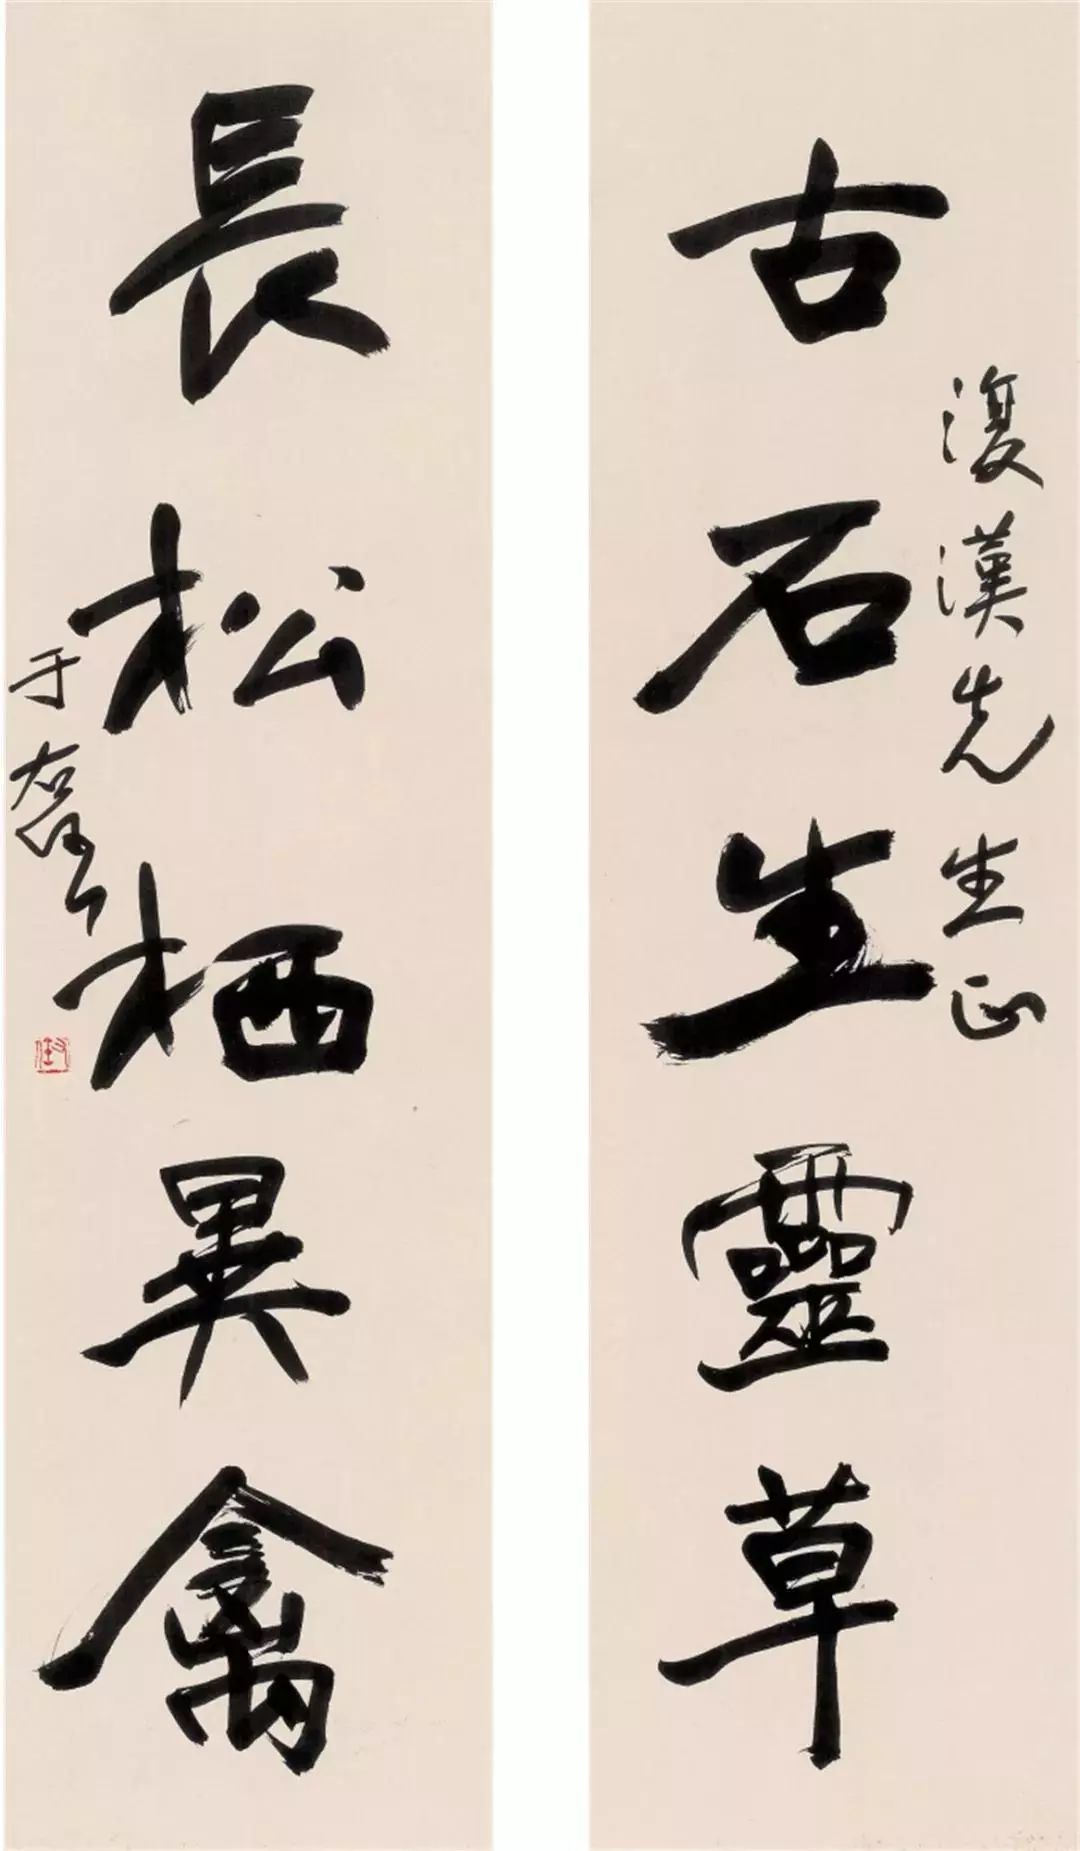 古石生靈草
復漢先生正
長松栖異禽
于右任